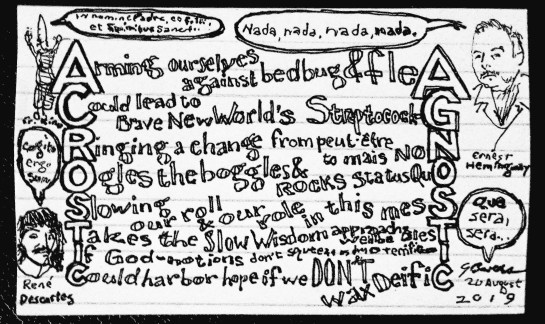 In nomine Padre,
et
Nada, nada, nada, nada.
Arming ourselves against bedbug & fleA
Could lead to Brave New World's
Ringing a change from peut-être to mais NON
Ogles the boggles & ROCKS Status QuO
Slowing our roll & our role in this mesS
Takes the Slow Wisdom approach
If God-notions don't
Could harbor hope if we DON'T wax DeifiC
Cogito ergo sum
René Descartes
Ernest Hemingway
Que sera, sera..
20 August 2019